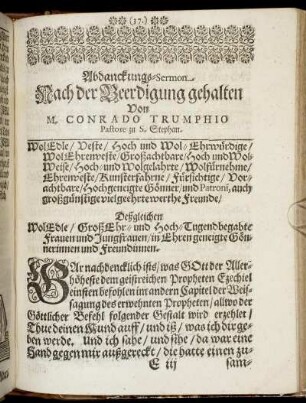 (17.)
Abdanckungs-Sermon
Nach der Beerdigung gehalten
Von
M. CONRADO TRUMPHIO
Pastore zu S. Stephan.
WolEdle / Veste / Hoch und Wol-Ehrwürdige /
WolEhrenveste / Großachtbare / Hoch und Wol-
Weise / Hoch- und Wolgelahrte / Wolfürnehme /
Ehrenveste / Kunsterfahrne / Fürsichtige / Vor-
achtbare / Hochgeneigte Gönner / und Patroni, auch
großgünstige vielgeehrte werthe Freunde /
Deßgleichen
WolEdle / GroßEhr- und Hoch-Tugendbegabte
Frauen und Jungfrauen / in Ehren geneigte Gön-
nerinnen und Freundinnen.
GAr nachdencklich ists / was GOtt der Aller-
höheste dem geistreichen Propheten Ezechiel
einsten befohlen im andern Capitel der Weis-
sagung des erwehnten Propheten / allwo der
Göttlicher Befehl folgender Gestalt wird erzehlet /
Thue deinen Mund auff / und iß / was ich dir ge-
ben werde. Und ich sahe / und sihe / da war eine
Hand gegen mir außgereckt / die hatte einen zu-
E iij
sam-